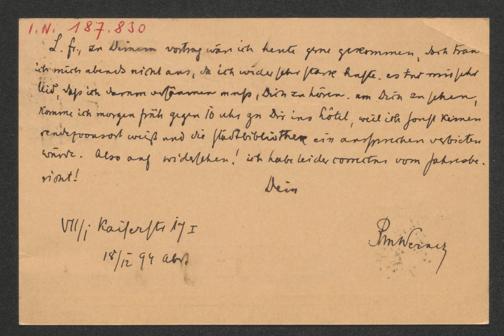 I.N. 187.830
L. fr., zu Deinem vortrag wäre ich heute gerne gekommen, doch trau
ich mich abends nicht aus, da ich wieder sehr stark huste. es tut mir sehr
leid, daß ich darum versäumen muß, Dich zu hören. um Dich zu sehen,
komme ich morgen früh gegen 10 uhr zu Dir ins hôtel, weil ich sonst keinen
rendezvousort weiß und die Stadtbibliothek ein ansprechen verbieten
würde. Also auf widersehen! ich habe leider correctur vom Jahresbe-
richt!
Dein
VII/1 Kaiserstr 17 I
18/IX 94 abds
RMWerner